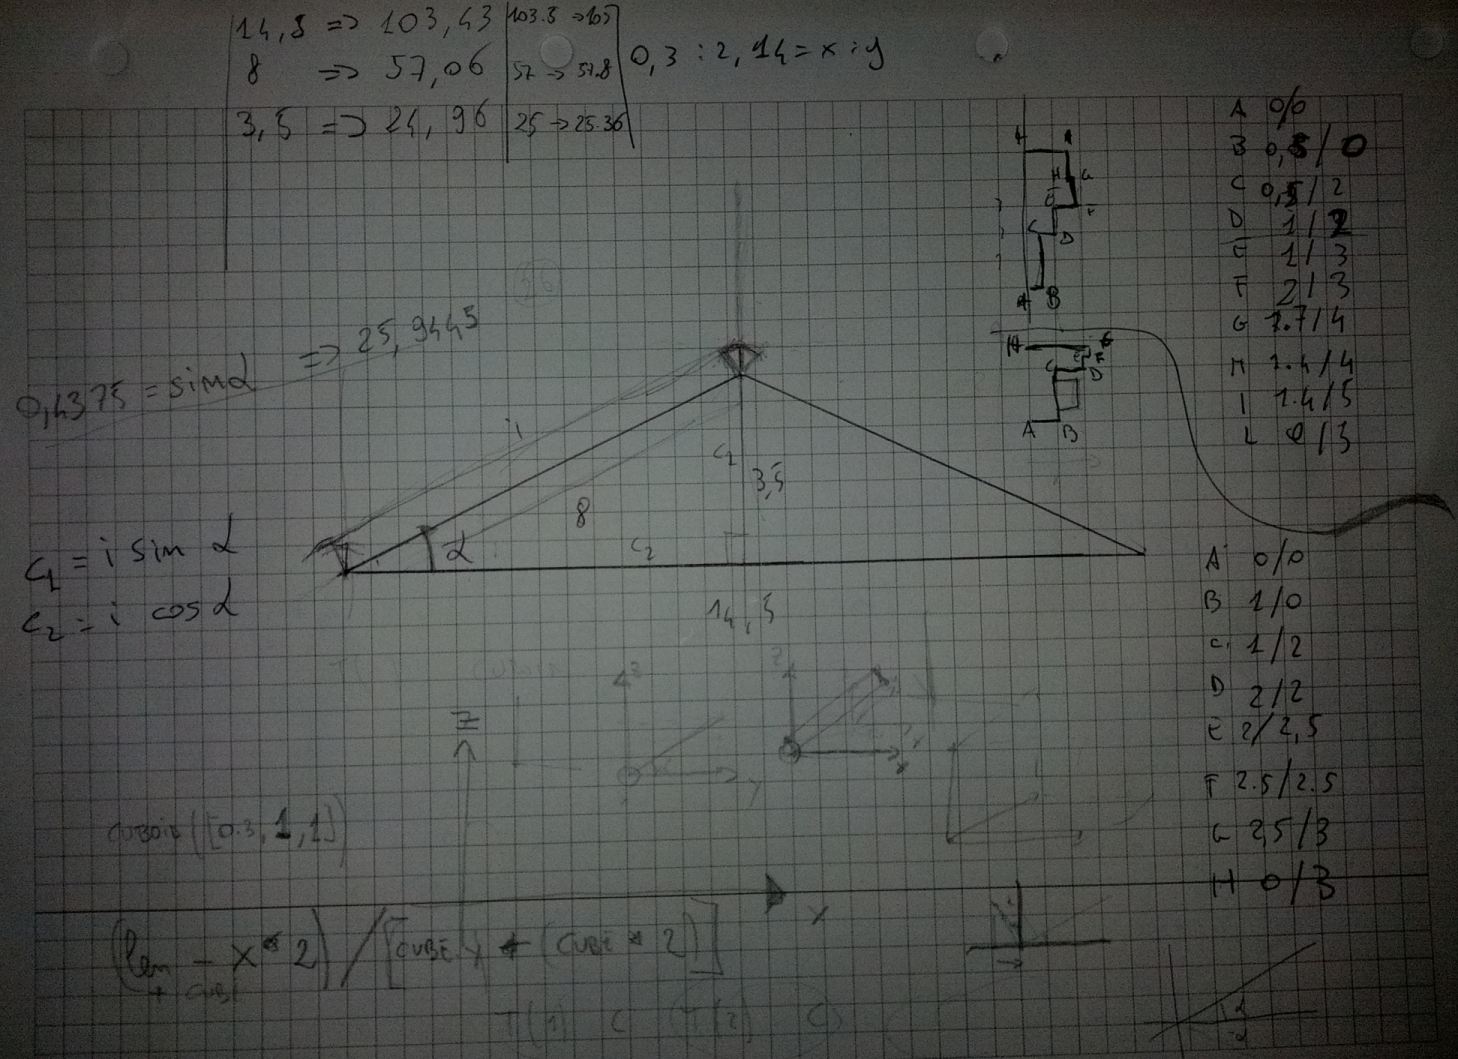 14,5 => 103,43 103.5 ->105
8 => 57,06 57 -> 57.8
3,5 => 24,96 25 -> 25.36
0,3 : 2,14 = x : y
0,4375 = sin α => 25,9445
i
c₁
3,5
8
α
c₂
14,5
c₁ = i sin α
c₂ = i cos α
A 0/0
B 0,5/0
C 0,5/2
D 1/2
E 1/3
F 2/3
G 1.7/4
H 1.4/4
I 1.4/5
L 0/3
A B
C D
A 0/0
B 1/0
C 1/2
D 2/2
E 2/2,5
F 2.5/2.5
G 2,5/3
H 0/3
Z
X
CUBOID([0.3,1,1])
(len - X*2) / [CUBE Y + (CUBE * 2)]